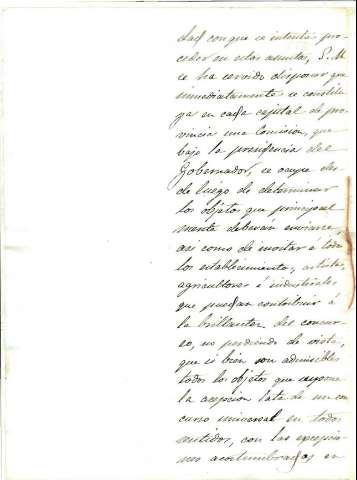 dad con que se intenta pro-
ceder en estos asuntos, S. M
se ha servido disponer que
inmediatamente se constitu-
ya en cada capital de pro-
vincia una Comision, que
bajo la presidencia del
Gobernador, se ocupe des-
de luego de determinar
los objetos que principal
mente deberan enviarse,
asi como de invitar á todos
los establecimientos, artistas,
agricultores é industriales
que puedan contribuir á
la brillantez del concur-
so, no perdiendo de vista,
que si bien son admisibles
todos los objetos que supone
la acepcion lata de un con
curso universal en todos
sentidos, con las excepcio-
nes acostumbradas en